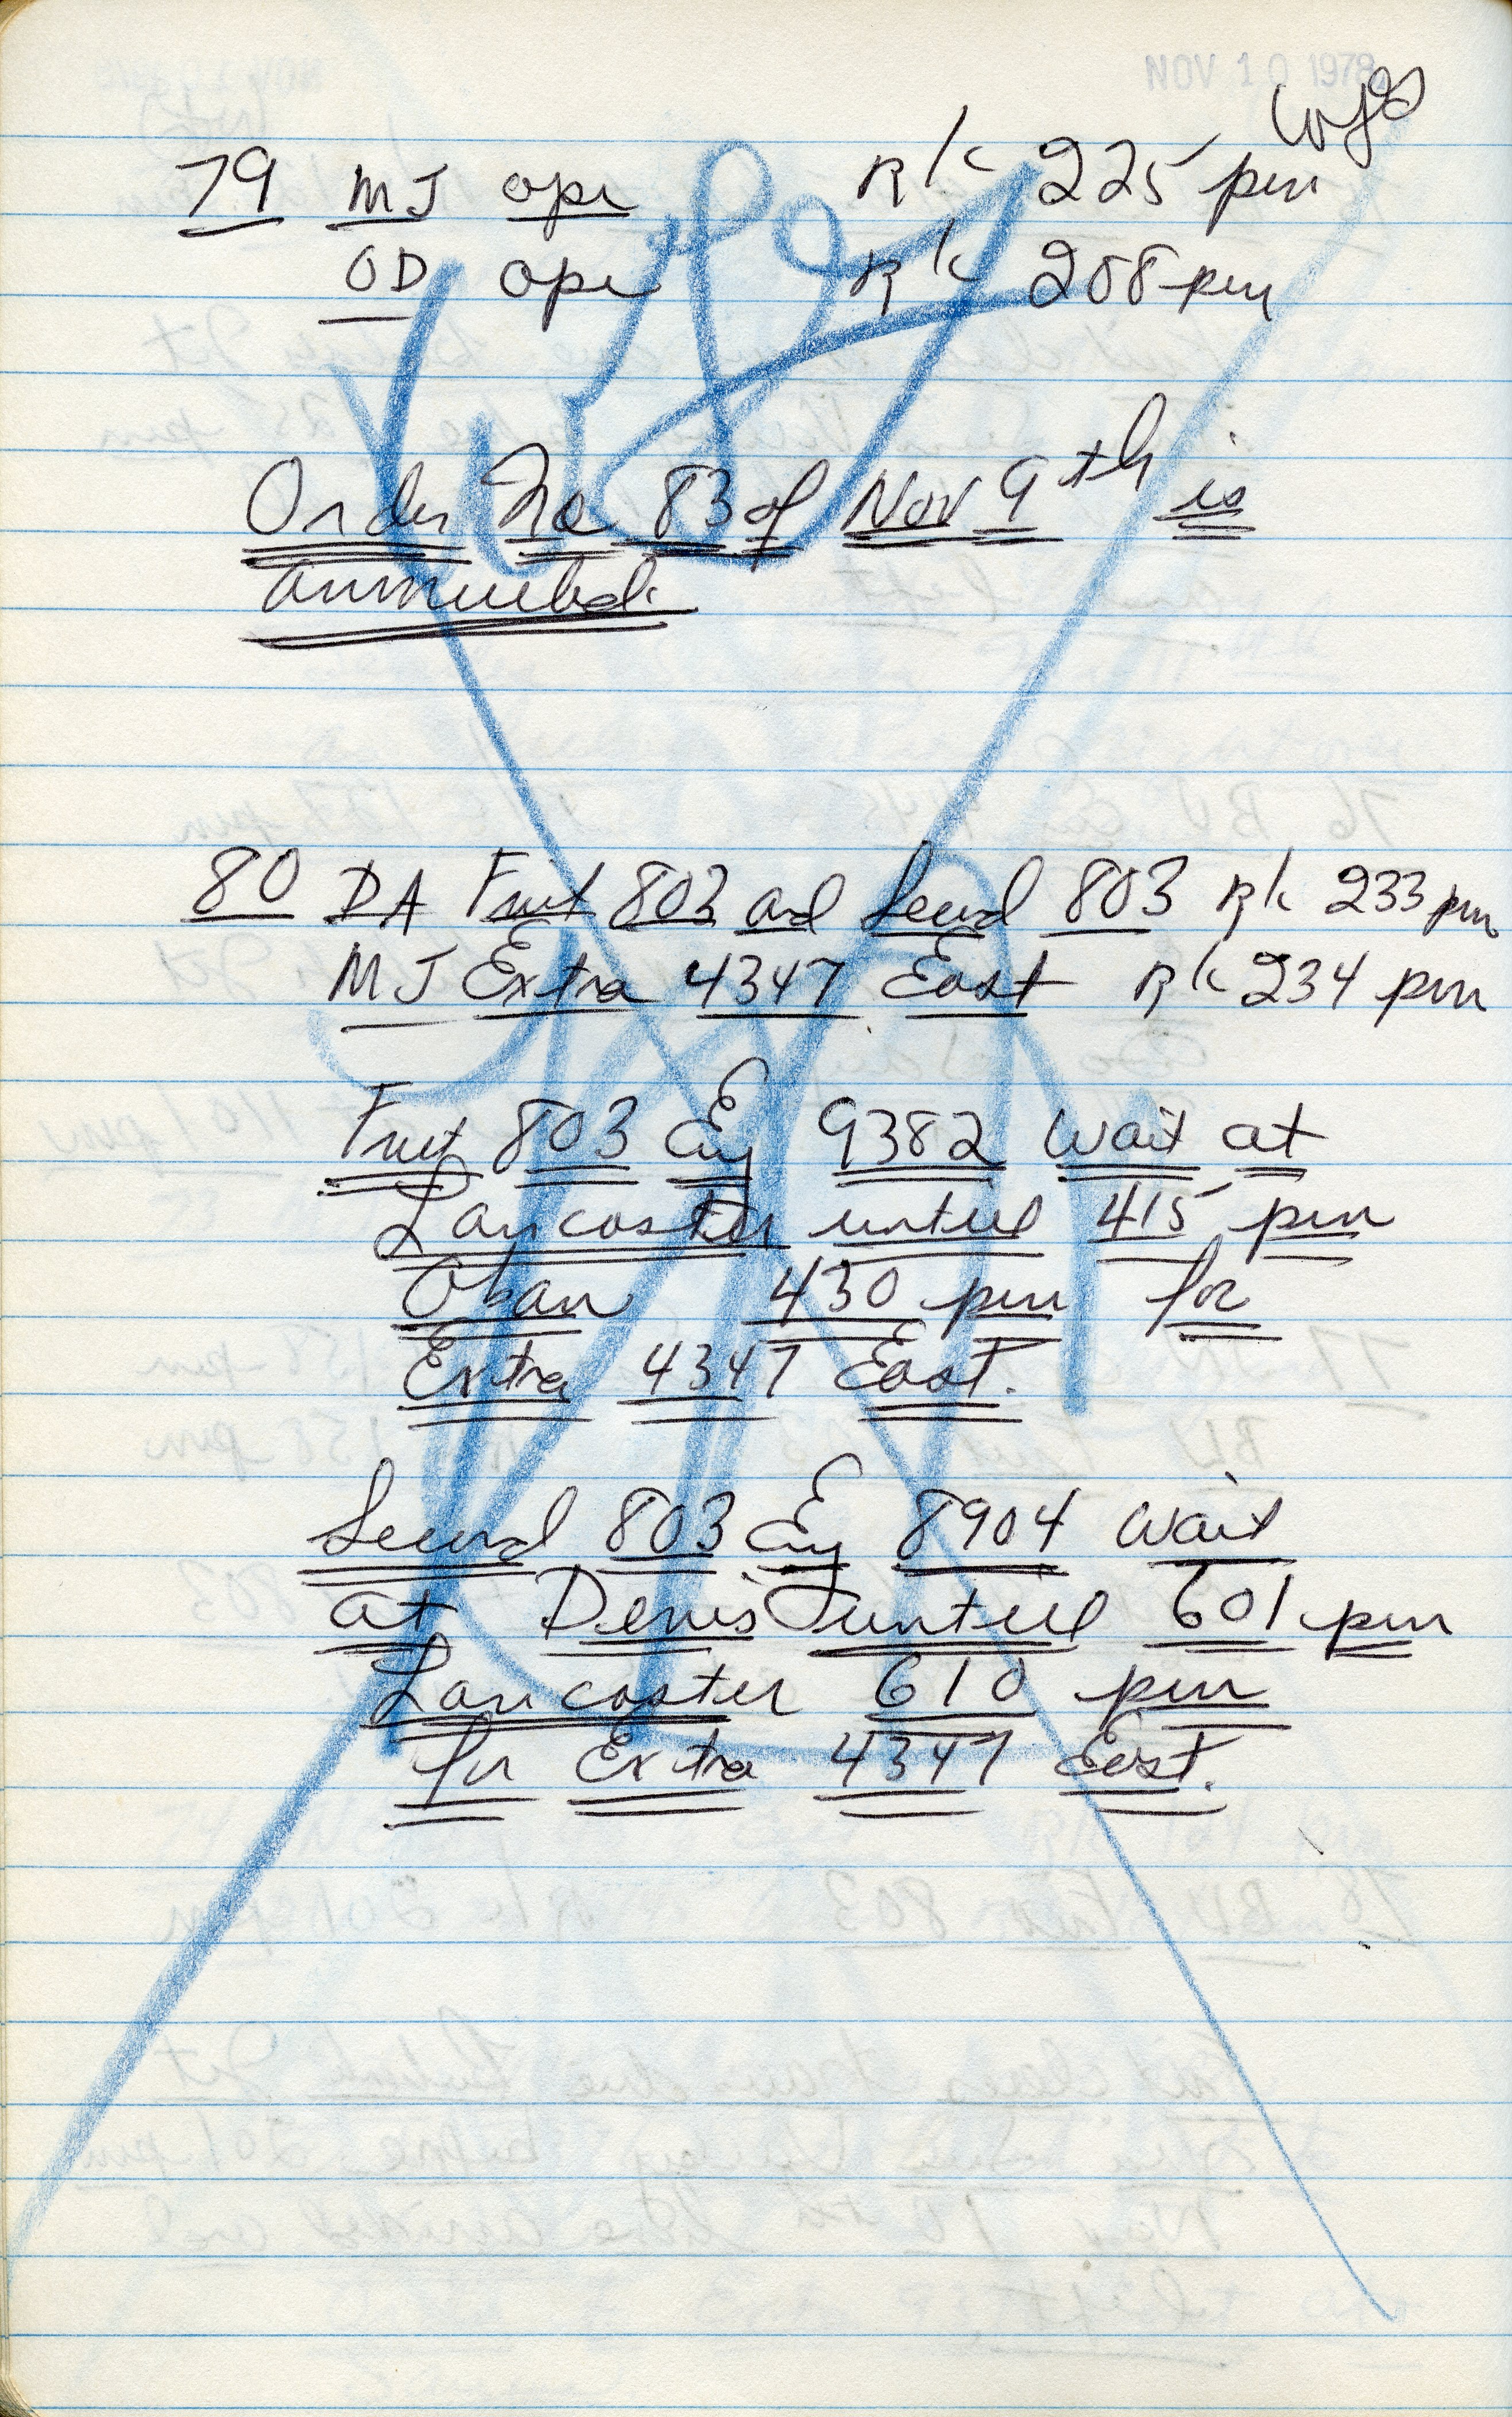 NOV 10 1978
WJS
79 MJ opr R/c 225 pm
OD opr R/c 208 pm
Order No 83 of Nov 9th is
annulled.
80 DA First 803 and Second 803 R/c 233 pm
MJ Extra 4347 East R/c 234 pm
First 803 Eng 9382 wait at
Lancaster until 415 pm
Oban 430 pm for
Extra 4347 East.
Second 803 Eng 8904 wait
at Denis Jct until 601 pm
Lancaster 610 pm
for Extra 4347 East.